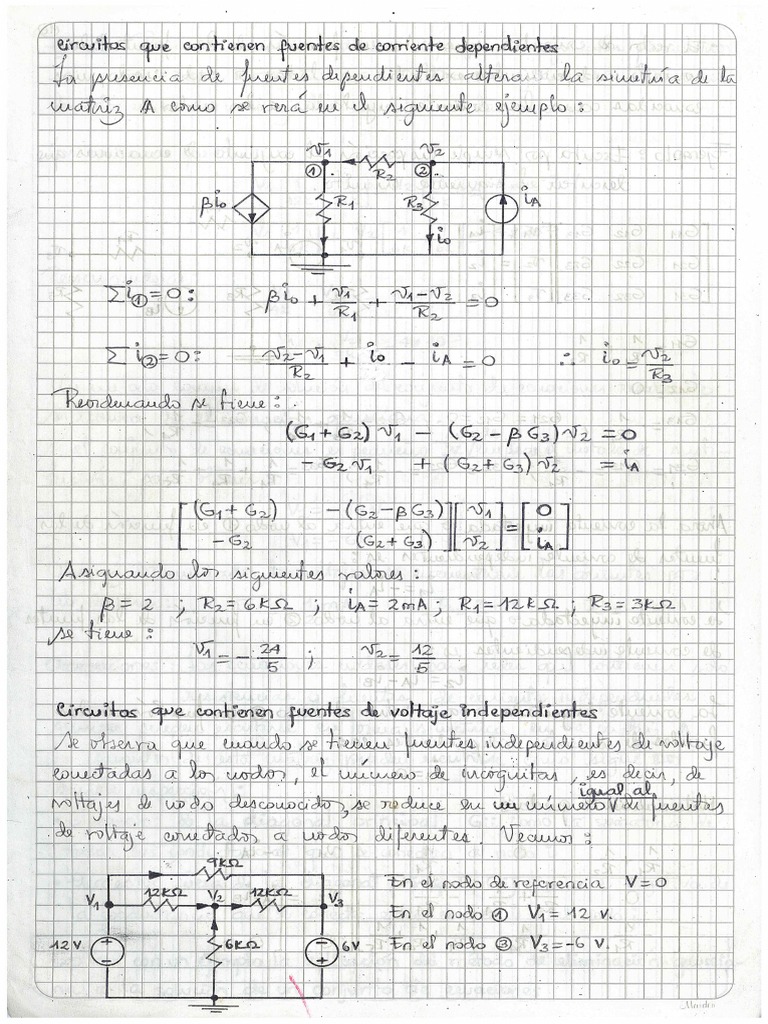 Circuitos que contienen fuentes de corriente dependientes
La presencia de fuentes dependientes alteran la simetría de la
matriz A como se verá en el siguiente ejemplo:
V1 V2
① R2 ②
βio R1 R3 iA
io
Σi①=0: βio + V1/R1 + (V1-V2)/R2 = 0
Σi②=0: (V2-V1)/R2 + io - iA = 0 ∴ io = V2/R3
Reordenando se tiene:
(G1+G2)V1 - (G2-βG3)V2 = 0
-G2V1 + (G2+G3)V2 = iA
[(G1+G2) -(G2-βG3)] [V1] = [0]
[-G2 (G2+G3)] [V2] [iA]
Asignando los siguientes valores:
β=2 ; R2=6KΩ ; iA=2mA ; R1=12KΩ ; R3=3KΩ
se tiene:
V1=-24/5 ; V2=12/5
Circuitos que contienen fuentes de voltaje independientes
Se observa que cuando se tienen fuentes independientes de voltaje
conectadas a los nodos, el número de incógnitas, es decir, de
igual al
voltajes de nodo desconocidos, se reduce en un número V de fuentes
de voltaje conectados a nodos diferentes. Veamos:
9KΩ
V1 12KΩ V2 12KΩ V3
12V 6KΩ 6V
En el nodo de referencia V=0
En el nodo ① V1=12 v.
En el nodo ③ V3=-6 v.